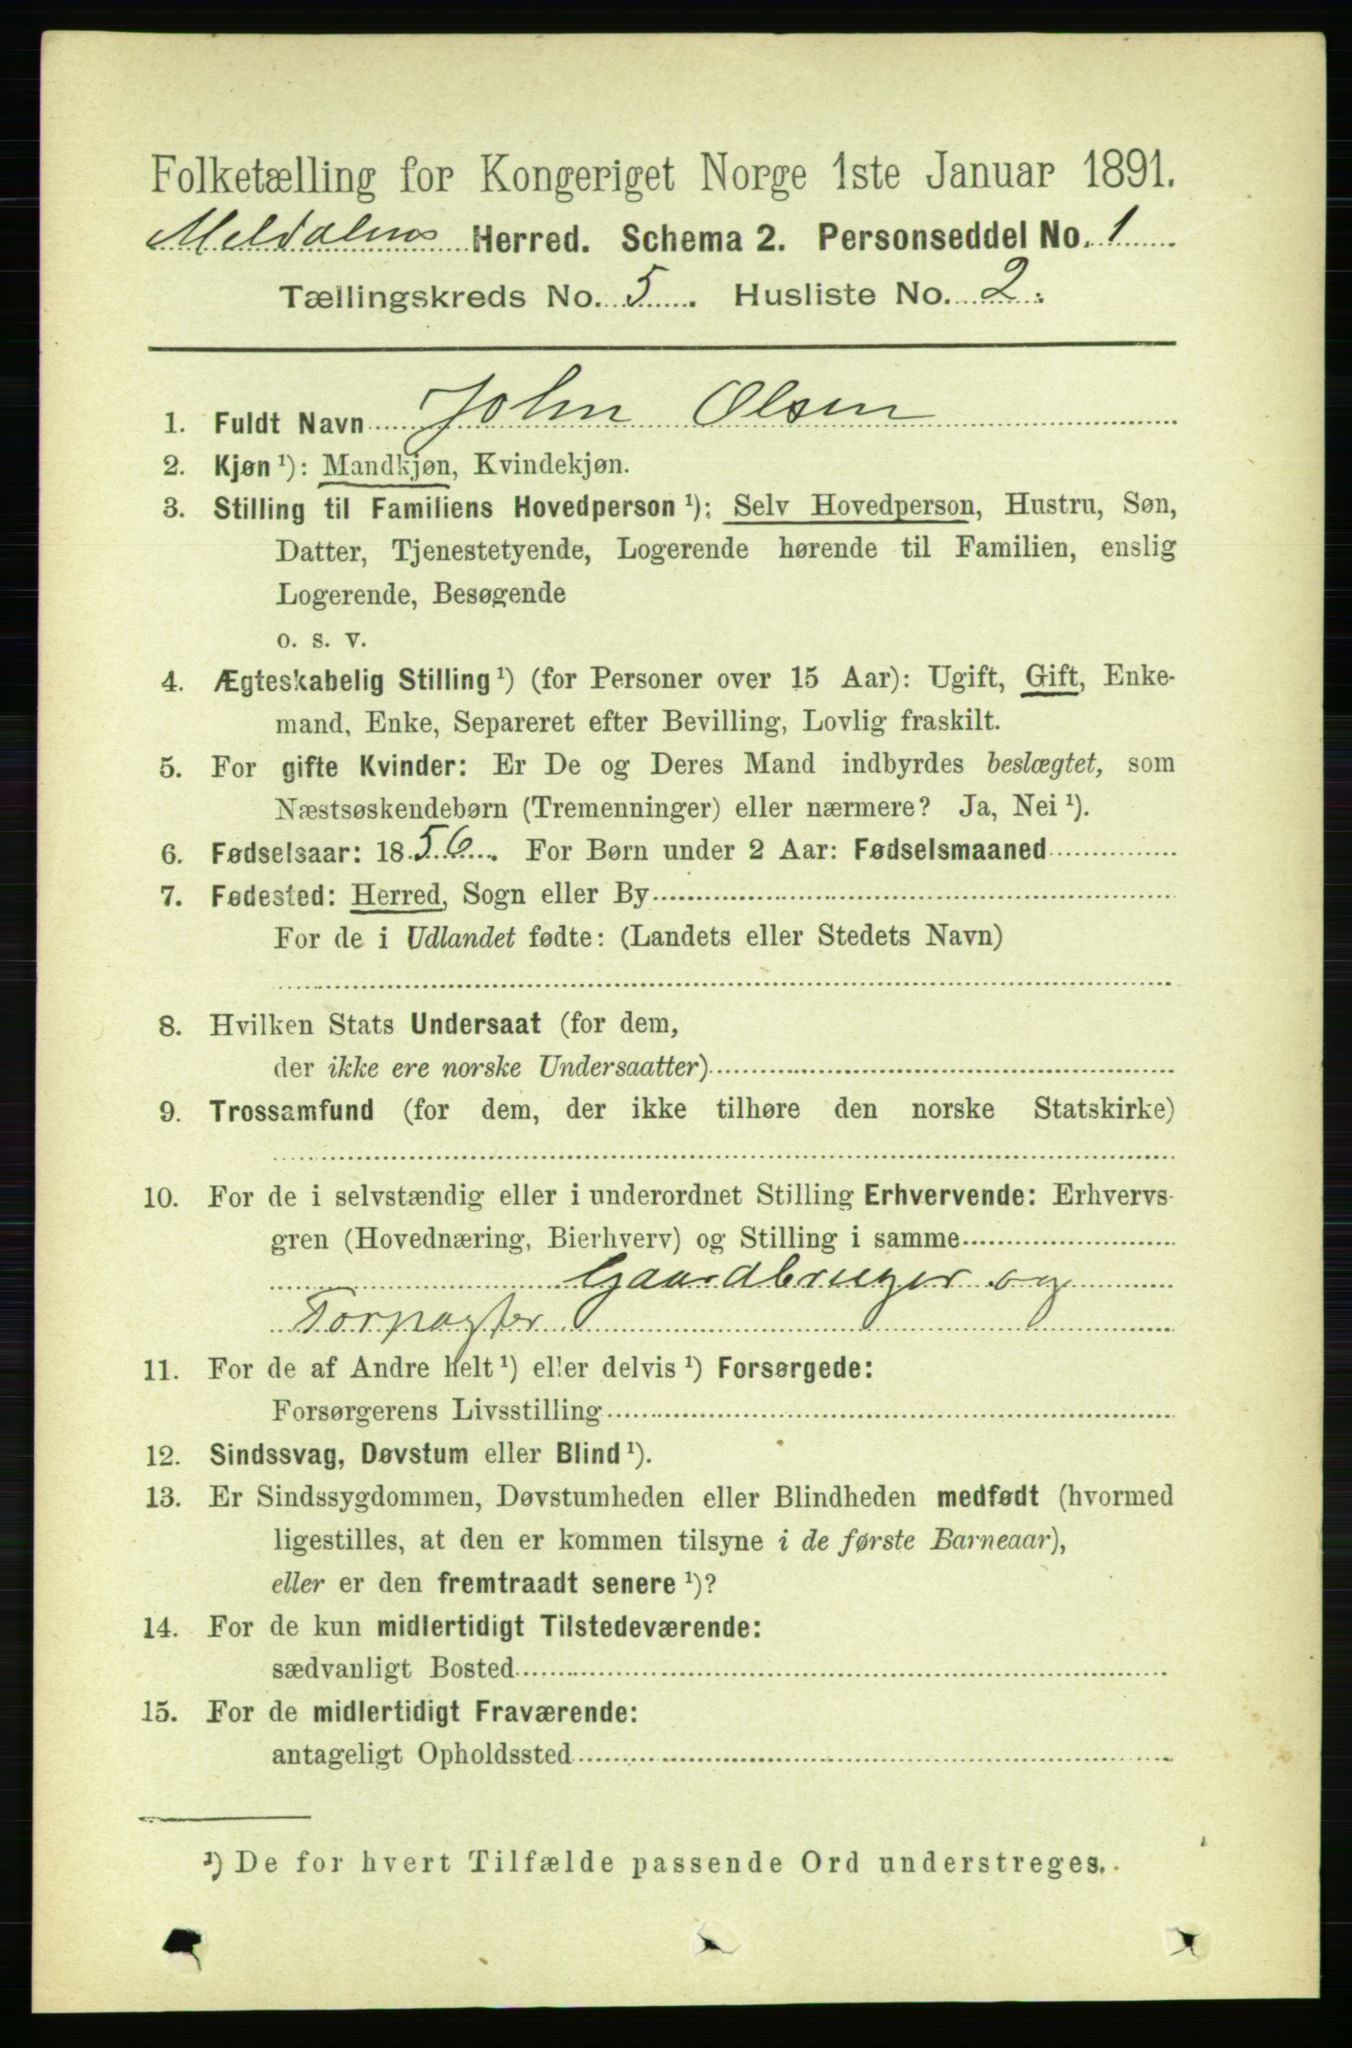 Folketælling for Kongeriget Norge 1ste Januar 1891.
Meldalens Herred. Schema 2. Personseddel No. 1
Tællingskreds No. 5. Husliste No. 2.
1. Fuldt Navn John Olsen
2. Kjøn ¹): Mandkjøn, Kvindekjøn.
3. Stilling til Familiens Hovedperson ¹): Selv Hovedperson, Hustru, Søn,
Datter, Tjenestetyende, Logerende hørende til Familien, enslig
Logerende, Besøgende
o. s. v.
4. Ægteskabelig Stilling ¹) (for Personer over 15 Aar): Ugift, Gift, Enke-
mand, Enke, Separeret efter Bevilling, Lovlig fraskilt.
5. For gifte Kvinder: Er De og Deres Mand indbyrdes beslægtet, som
Næstsøskendebørn (Tremenninger) eller nærmere? Ja, Nei ¹).
6. Fødselsaar: 1856. For Børn under 2 Aar: Fødselsmaaned
7. Fødested: Herred, Sogn eller By
For de i Udlandet fødte: (Landets eller Stedets Navn)
8. Hvilken Stats Undersaat (for dem,
der ikke ere norske Undersaatter)
9. Trossamfund (for dem, der ikke tilhøre den norske Statskirke)
10. For de i selvstændig eller i underordnet Stilling Erhvervende: Erhvervs-
gren (Hovednæring, Bierhverv) og Stilling i samme
Gaardbruger og
Forpagter
11. For de af Andre helt ¹) eller delvis ¹) Forsørgede:
Forsørgerens Livsstilling
12. Sindssvag, Døvstum eller Blind ¹).
13. Er Sindssygdommen, Døvstumheden eller Blindheden medfødt (hvormed
ligestilles, at den er kommen tilsyne i de første Barneaar),
eller er den fremtraadt senere ¹)?
14. For de kun midlertidigt Tilstedeværende:
sædvanligt Bosted
15. For de midlertidigt Fraværende:
antageligt Opholdssted
¹) De for hvert Tilfælde passende Ord understreges.